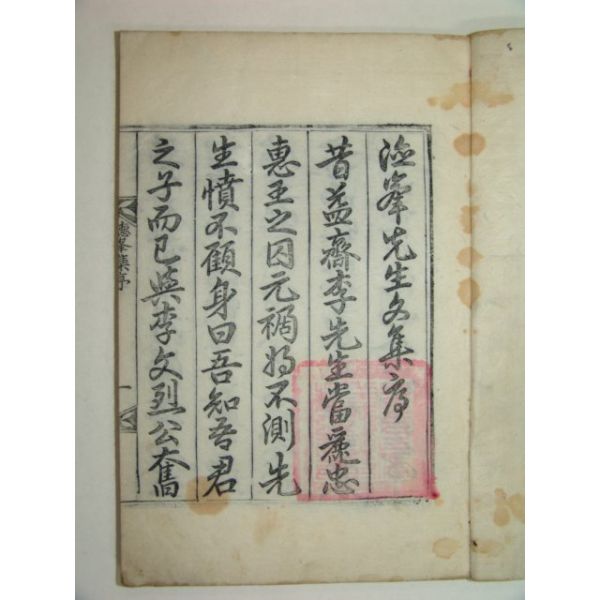 德峯先生文集序
昔益齋李先生當麗忠
惠王之囚元禍将不測先
生憤不顧身曰吾知吾君
之子而已與李文烈公奮
德峯集序
一